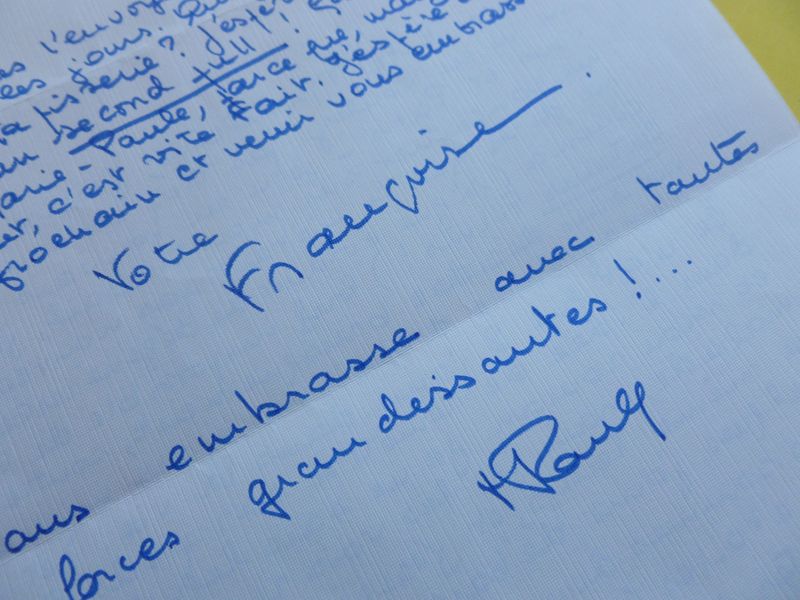 l'envoy
ces jours. Qu
tapisserie ? J'esp
un second pull ! 
Marie-Paule, parce que, ma
c'est vite fait. J'espère
prochain et venir vous embrass
Votre Françoise.
ous embrasse avec toutes
forces grandissantes !...
MPaule